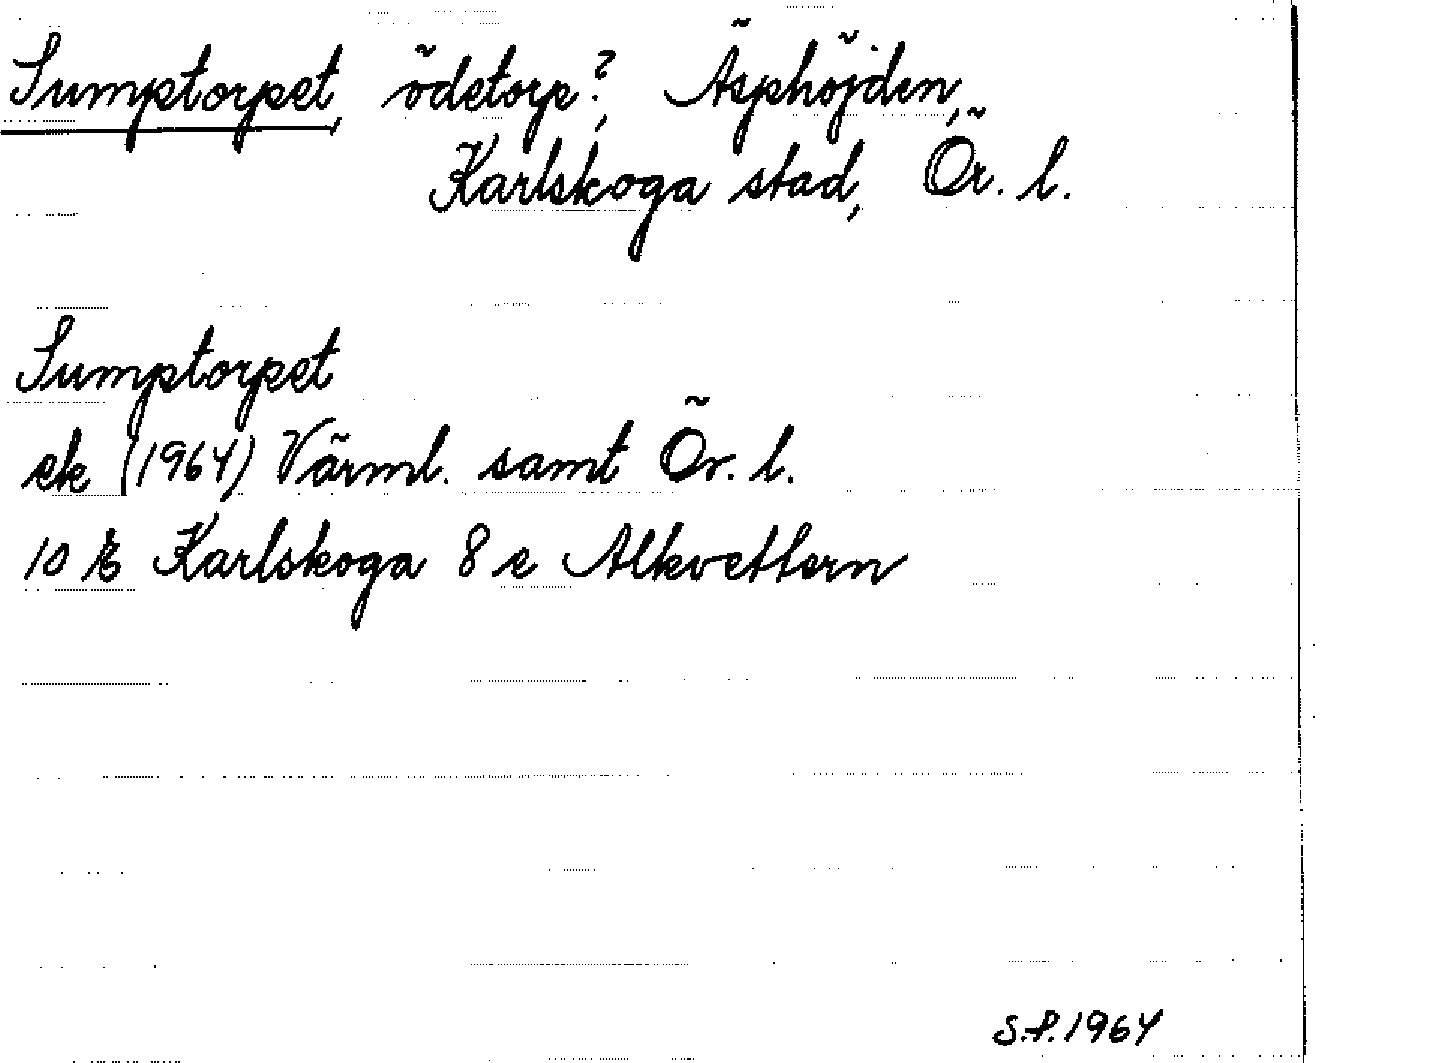 Sumptorpet, ödetorp?, Äsphöjden,
Karlskoga stad, Ör. l.
Sumptorpet
ek (1964) Värml. samt Ör. l.
10 Karlskoga 8 e Alkvettern
S.P. 1964